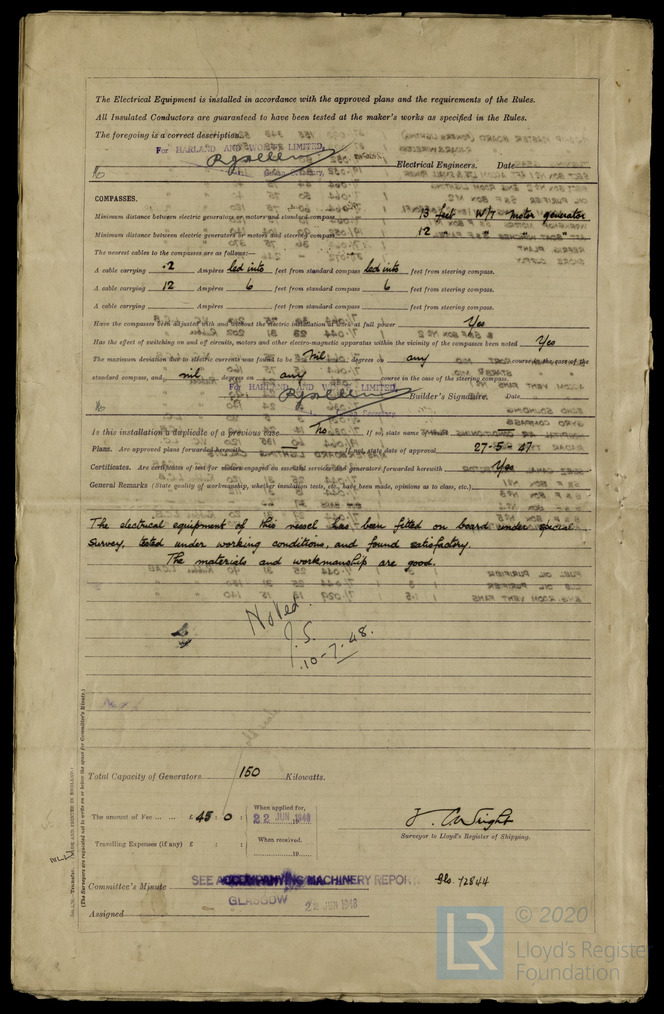 The Electrical Equipment is installed in accordance with the approved plans and the requirements of the Rules.
All Insulated Conductors are guaranteed to have been tested at the maker's works as specified in the Rules.
The foregoing is a correct description.
For HARLAND AND WOLFF LIMITED,
Electrical Engineers. Date
COMPASSES.
Minimum distance between electric generators or motors and standard compass 13 feet W/T motor generator
Minimum distance between electric generators or motors and steering compass 12 " " "
The nearest cables to the compasses are as follows:—
A cable carrying .2 Ampères led into feet from standard compass led into feet from steering compass.
A cable carrying 12 Ampères 6 feet from standard compass 6 feet from steering compass.
A cable carrying Ampères feet from standard compass feet from steering compass.
Have the compasses been adjusted with and without the electric installation at work at full power Yes
Has the effect of switching on and off circuits, motors and other electro-magnetic apparatus within the vicinity of the compasses been noted Yes
The maximum deviation due to electric currents was found to be Nil degrees on any course in the case of the
standard compass, and nil degrees on any course in the case of the steering compass.
For HARLAND AND WOLFF LIMITED,
Builder's Signature. Date
Is this installation a duplicate of a previous case No. If so, state name of vessel
Plans. Are approved plans forwarded herewith — If not, state date of approval 27-5-47
Certificates. Are certificates of test for motors engaged on essential services and generators forwarded herewith Yes
General Remarks (State quality of workmanship, whether insulation tests, etc., have been made, opinions as to class, etc.)
The electrical equipment of this vessel has been fitted on board under special
survey, tested under working conditions, and found satisfactory.
The materials and workmanship are good.
Noted.
J.S.
10-7-48.
Total Capacity of Generators 150 Kilowatts.
The amount of Fee ... ... £ 45 : 0 :
When applied for,
22 JUN 1948
Travelling Expenses (if any) £ : :
When received.
19
Surveyor to Lloyd's Register of Shipping.
Committee's Minute SEE ACCOMPANYING MACHINERY REPORT Gls. 72844
GLASGOW 22 JUN 1948
Assigned
(The Surveyors are requested not to write on or below the space for Committee's Minute.)
© 2020
LR
Lloyd's Register
Foundation